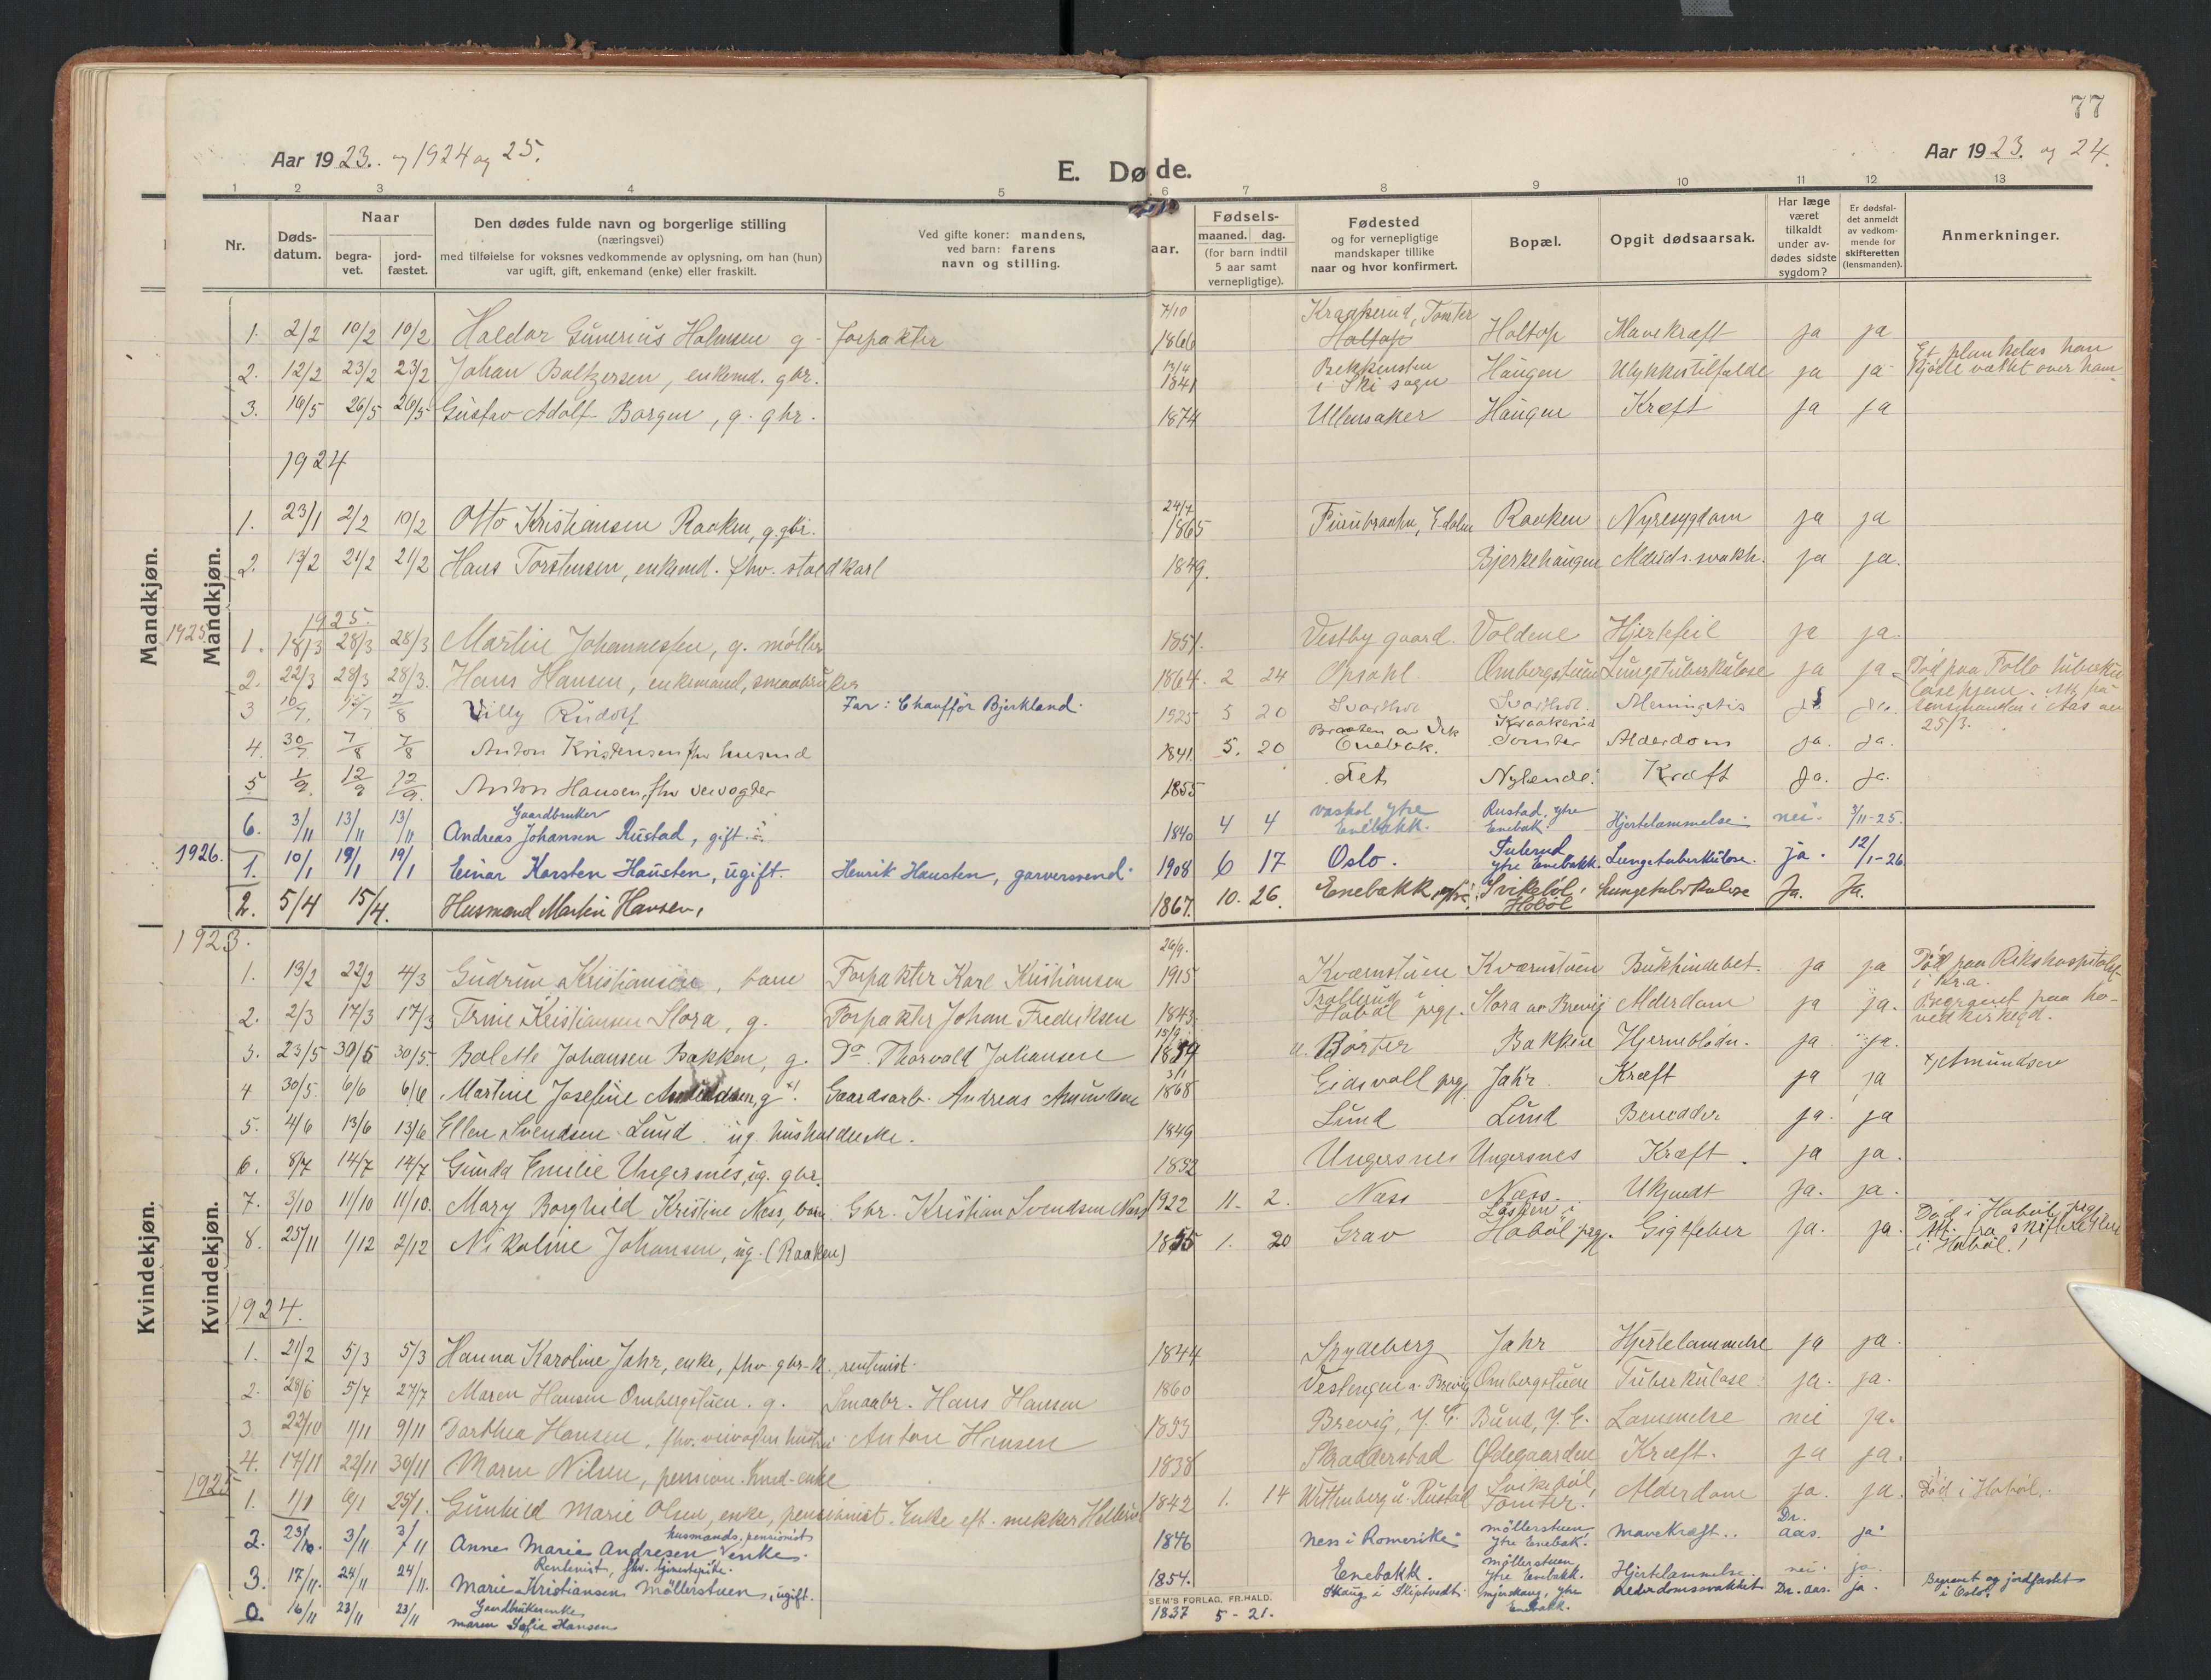 77
Aar 1923. og 1924 og 25.
E. Døde.
Aar 1923. og 24.
1 2 3 4 5 6 7 8 9 10 11 12 13
Nr.
Døds-
datum.
Naar
begra-
vet.
jord-
fæstet.
Den dødes fulde navn og borgerlige stilling
(næringsvei)
med tilføielse for voksnes vedkommende av oplysning, om han (hun)
var ugift, gift, enkemand (enke) eller fraskilt.
Ved gifte koner: mandens,
ved barn: farens
navn og stilling.
aar.
Fødsels-
maaned. dag.
(for barn indtil
5 aar samt
vernepligtige).
Fødested
og for vernepligtige
mandskaper tillike
naar og hvor konfirmert.
Bopæl.
Opgit dødsaarsak.
Har læge
været
tilkaldt
under av-
dødes sidste
sygdom?
Er dødsfal-
det anmeldt
av vedkom-
mende for
skifteretten
(lensmanden).
Anmerkninger.
Mandkjøn.
Mandkjøn.
1. 2/2 10/2 10/2 Haldor Gunerius Holmsen g - Forpakter 7/10 1866 Kraakerud, Tomter Holtop Holtop Mavekræft ja ja
2. 12/2 23/2 23/2 Johan Baltzersen, enkemd. gbr. 13/4 1841 i Ski sogn Haugen Ulykkestilfælde ja ja
3. 16/5 26/5 26/5 Gustav Adolf Borgen, g. gbr. 1874 Ullensaker Haugen Kræft ja ja
1924
1. 23/1 2/2 10/2 Otto Kristiansen Raaken, g. gbr. 24/4 1865 Raaken Nyresygdom ja ja
2. 13/2 21/2 21/2 Hans Torstensen, enkemd. fhv. staldkarl 1849. Bjerkehaugen Alderds. svakh. ja ja.
1925.
1925
1. 18/3 28/3 28/3 Martin Johannessen, g. møller 1857. Vestby gaard. Voldene Hjertefeil ja ja.
2. 22/3 28/3 28/3. Hans Hansen, enkemand, smaabruker 1864. 2 24 Opsahl. Ombergstuen Lungetuberkulose ja ja. Død paa Follo tuberku
losehjem. Att. fra
lensmanden i Aas av
25/3.
3 Willy Rudolf Far: Chauffør Bjerkland. 1925 5 20 Meningitis
4. 30/7 7/8 7/8 Anton Kristensen fhv husmd 1841. 5. 20 Enebak. Kraakerud Tomter Alderdom ja. ja.
5 1/9. 12/9 12/9. Anton Hansen, fhv veivogter 1855 Fet Nylende. Kræft Ja. ja.
6. 3/11 13/11 13/11 Gaardbruker
Andreas Johansen Rustad, gift. 1840 4 4 Ytre Enebakk. Rustad, ytre Enebak. Hjertelammelse. nei. 3/11-25.
1926.
1. 10/1 19/1 19/1 Einar Karsten Hausten, ugift. Henrik Hausten, garversvend. 1908 6 17 Oslo. Ytre Enebakk. Lungetuberkulose. ja. 12/1-26
2. 5/4 15/4. Husmand Martin Hansen, 1867. 10. 26. Enebakk, ytre. Svikebøl, Hobøl Lungetuberkulose Ja. Ja.
Kvindekjøn.
Kvindekjøn.
1923.
1. 13/2 22/2 4/3 Gudrun Kristiansen, barn Forpakter Karl Kristiansen 26/9. 1915 Kværnstuen Kværnstuen Bukhindebet. ja ja Død paa Rikshospitalet
i Kr.a.
2. 2/3 17/3 17/3 Trine Kristiansen Slora, g. Forpakter Johan Fredriksen 1843. Trollerud i Hobøl prgj. Slora av Brevig Alderdom ja ja. Begravet paa ho-
vedkirkegd.
3. 23/5 30/5 30/5. Bolette Johansen Bakken, g. Do. Thorvald Johansen Børter Bakken Hjerneblødn. ja ja.
4 30/5. 6/6 6/6 Martine Josefine Amundsen, g x! Gaardsarb. Andreas Amundsen 3/1 1868 Eidsvoll prgj. Jahr Kræft ja ja x/ Amundsen
5. 4/6 13/6 13/6 Ellen Svendsen Lund. ug. husholderske. 1849 Lund Lund Benedder ja. ja
6. 8/7 14/7 14/7 Gunda Emilie Ungersnes, ug. gbr. 1852 Ungersnes Ungersnes Kræft. ja ja.
7. 3/10 11/10 11/10. Mary Borghild Kristine Næss, barn. Gbr. Kristian Svendsen Næss 1922 11. 2. Næss Næss. Ukjendt ja. ja.
8. 25/11 1/12 2/12 Nikoline Johansen, ug. (Raaken) 1855 1. 20 Grav Hobøl prgj. Gigtfeber ja. ja. Død i Hobøl prgj.
Att. fra skifteretten
i Hobøl.!
1924.
1. 21/2 5/3 5/3 Hanna Karoline Jahr, enke, fhv. gbr-k, rentenist. 1844 Spydeberg Jahr Hjertelammelse ja ja.
2. 28/6 5/7 27/7 Maren Hansen Ombergstuen. g. Smaabr. Hans Hansen 1860 Vestengen u. Brevig Ombergstuen Tuberkulose. ja. ja.
3. 22/10 1/11 9/11 Dorthea Hansen, fhv. veivogters hustru Anton Hansen Brevig, Y. E. Bund, Y. E. Lammelse nei ja.
4. 17/11 22/11 30/11 Maren Nilsen, pension. 1838 Skrædderstad Ødegaarden Kræft. ja ja.
1925
1. 1/1 6/1 25/1. Gunhild Marie Olsen, enke, pensionist. Enke eft. snekker 1842 1. 14 Wittenberg u. Rustad Svikebøl, Tomter. Alderdom ja. ja. Død i Hobøl.
2. 3/11 husmands, pensionist
Anne Marie Andresen enke. 1846 Nes i Romerike Møllerstuen, Ytre Enebak. Mavekræft. Dr. Aas. ja.
3. 17/11. 24/11 24/11. Rentenist, fhv. tjenestepike.
Marie Kristiansen Møllerstuen, ugift. 1854. Enebakk. Møllerstuen Ytre Enebakk. Hjertelammelse. nei. ja.
0. 16/11 23/11 23/11 Gaardbrukerenke
Maren Sofie Hansen 1837 5 - 21. Skaug i Skiptvedt. Ytre Enebakk. Alderdomssvakhet Dr. Aas. ja. Begravet og jordfæstet
i Oslo.
SEM'S FORLAG, FR.HALD.